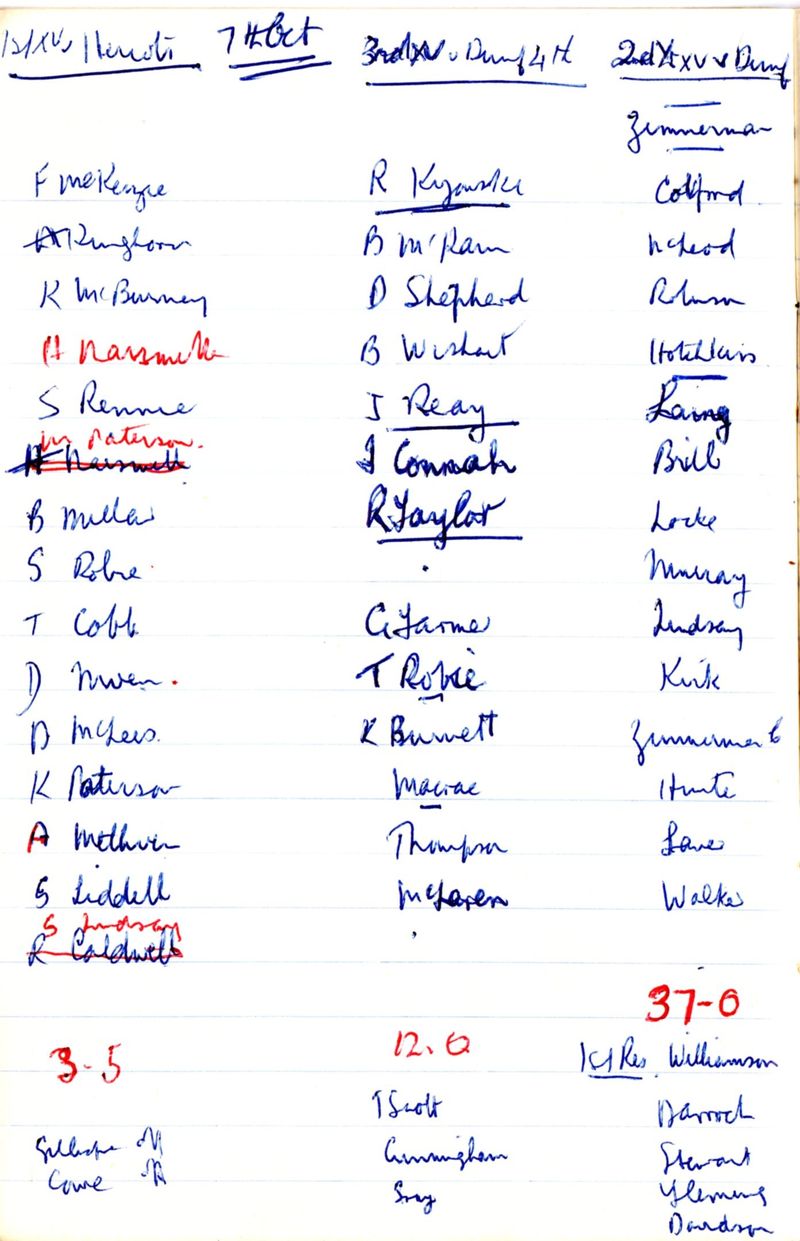 1st XV v Heriots
F McKenzie
A Kinghorn
K McBurney
H Naismith
S Rennie
M Paterson.
B Millar
S Robie
T Cobb
D Niven.
D McLees.
K Paterson
A Methven
S Liddell
S Lindsay
R Caldwell
3-5
Gillespie
Cowe
7th Oct
3rd XV v Dumf 4th
R
B McRann
D Shepherd
B Wishart
J Reay
J Connah
R Taylor
G Farmer
T Robie
K Burnett
Macrae
Thompson
McLaren
12.0
T Scott
Cunningham
Gray
2nd XV v Dumf
Zimmerman
McLeod
Robinson
Hotchkiss
Laing
Brill
Locke
Murray
Lindsay
Kirk
Zimmerman
Hunter
Walker
37-0
1st Res Williamson
Darroch
Stewart
Fleming
Davidson